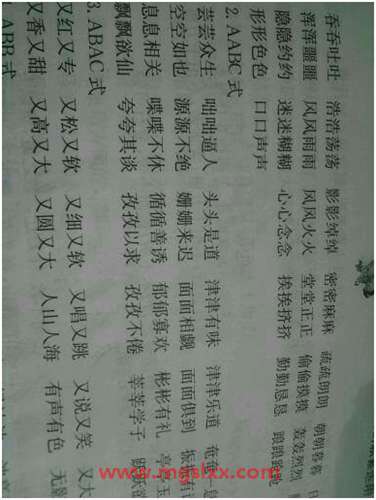 吞吞吐吐 浩浩荡荡 影影绰绰 密密麻麻 疏疏朗朗 朝朝暮暮
浑浑噩噩 风风雨雨 风风火火 堂堂正正 偷偷摸摸 轰轰烈烈
隐隐约约 迷迷糊糊 心心念念 挨挨挤挤 勤勤恳恳 踉踉跄跄
形形色色 口口声声
2. AABC 式
芸芸众生 咄咄逼人 头头是道 津津有味 津津乐道
空空如也 源源不绝 姗姗来迟 面面相觑 面面俱到 振振有
息息相关 喋喋不休 循循善诱 郁郁寡欢 彬彬有礼 亭亭玉
飘飘欲仙 夸夸其谈 孜孜以求 孜孜不倦 莘莘学子
3. ABAC 式
又红又专 又松又软 又细又软 又唱又跳 又说又笑 又大
又香又甜 又高又大 又圆又大 人山人海 有声有色 无影
ABB 式
www.mgslxx.com